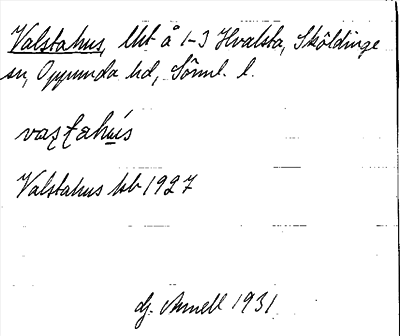 Valstahus, lht å 1-3 Hvalsta, Sköldinge
sn, Oppunda hd, Södml. l.
vaʂʈahús
Valstahus kb 1927
dj. Arnell 1931